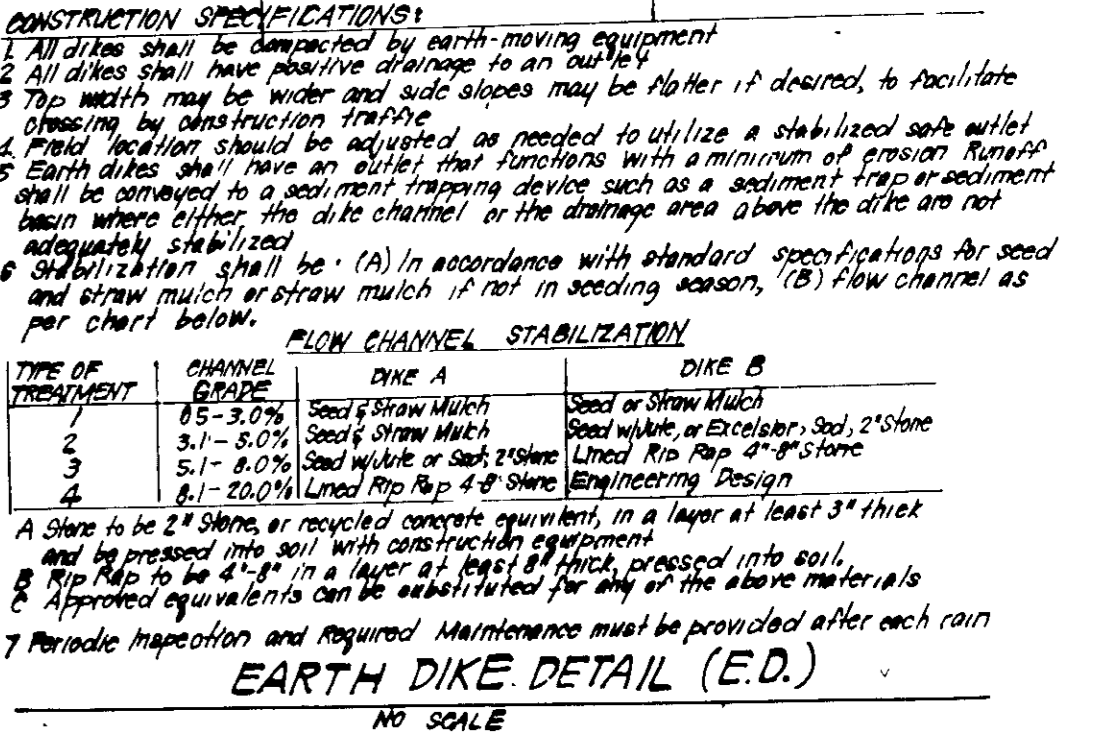 CONSTRUCTION SPECIFICATIONS:
1. All dikes shall be compacted by earth-moving equipment
2 All dikes shall have positive drainage to an outlet
3 Top width may be wider and side slopes may be flatter if desired, to facilitate
crossing by construction traffic
4. Field location should be adjusted as needed to utilize a stabilized safe outlet
5 Earth dikes shall have an outlet that functions with a minimum of erosion Runoff
shall be conveyed to a sediment trapping device such as a sediment trap or sediment
basin where either the dike channel or the drainage area above the dike are not
adequately stabilized
6 Stabilization shall be · (A) In accordance with standard specifications for seed
and straw mulch or straw mulch if not in seeding season, (B) flow channel as
per chart below.
FLOW CHANNEL STABILIZATION
TYPE OF TREATMENT CHANNEL GRADE DIKE A DIKE B
1 05-3.0% Seed & Straw Mulch Seed or Straw Mulch
2 3.1-5.0% Seed & Straw Mulch Seed w/Jute, or Excelsior, Sod, 2" Stone
3 5.1-8.0% Seed w/Jute or Sod; 2" Stone Lined Rip Rap 4"-8" Stone
4 8.1-20.0% Lined Rip Rap 4-8" Stone Engineering Design
A Stone to be 2" Stone, or recycled concrete equivilent, in a layer at least 3" thick
and be pressed into soil with construction equipment
B Rip Rap to be 4"-8" in a layer at least 8" thick, pressed into soil.
C Approved equivalents can be substituted for any of the above materials
7 Periodic Inspection and Required Maintenance must be provided after each rain
EARTH DIKE DETAIL (E.D.)
NO SCALE